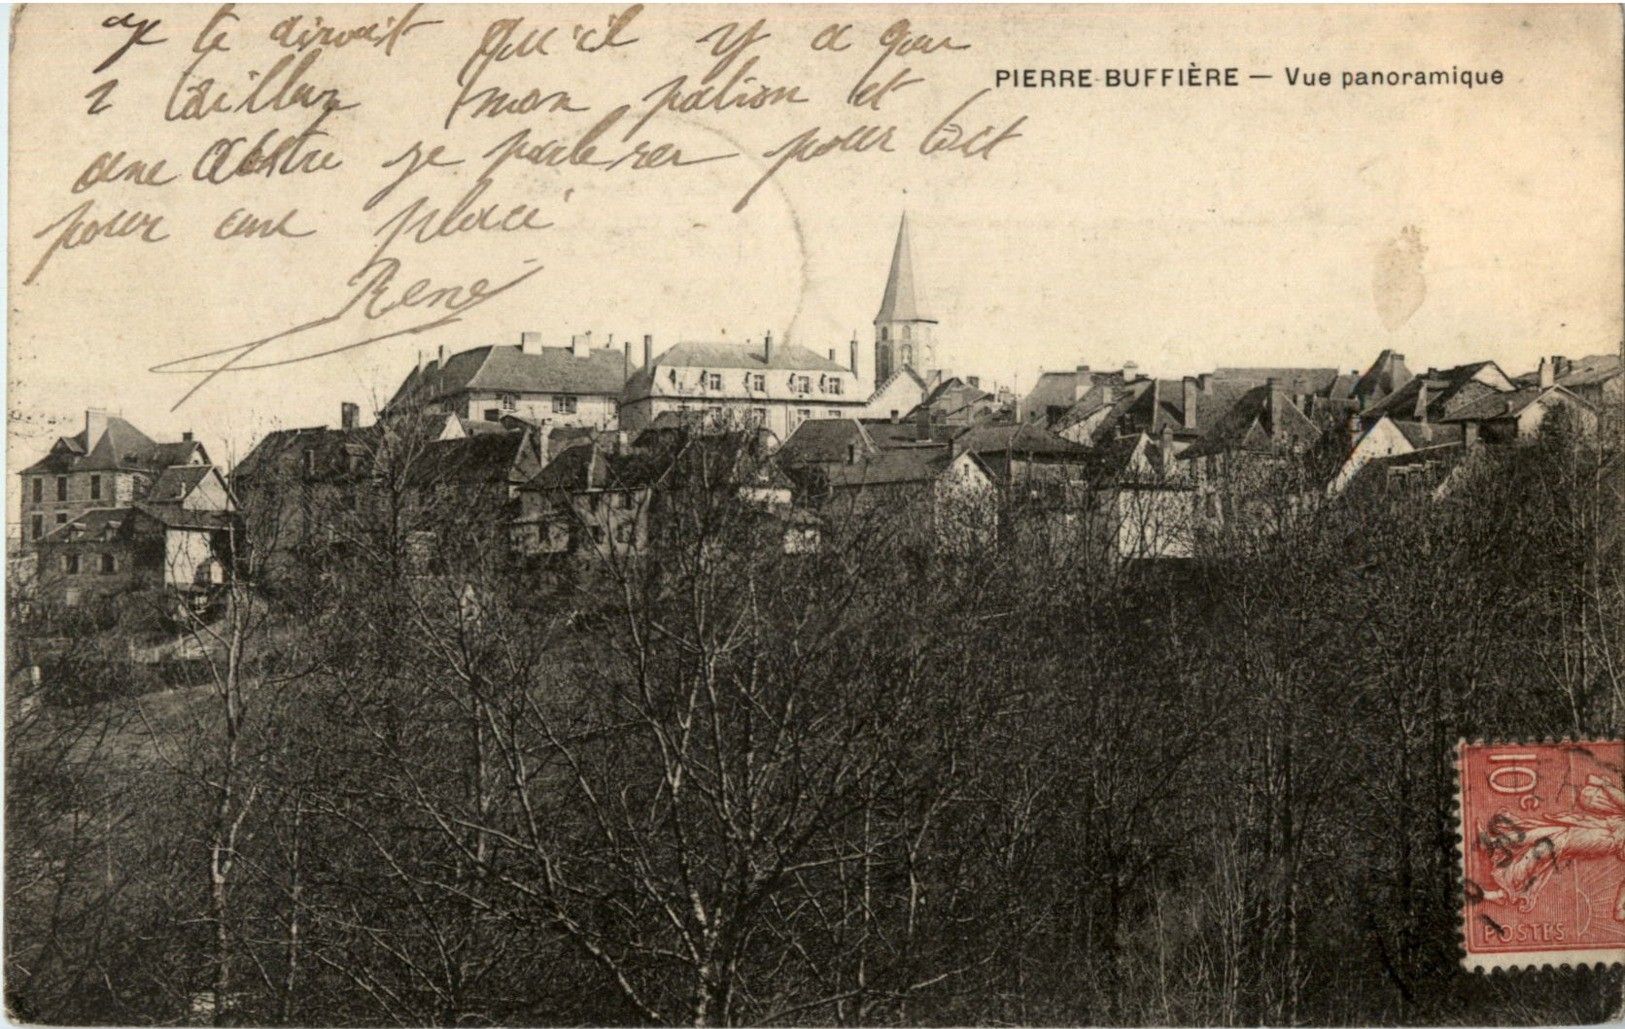 je te dirait qu'il y a que
2 tailleur mon patron et
une autre je parlerer pour toit
pour une place
René
PIERRE-BUFFIÈRE — Vue panoramique
10c
POSTES